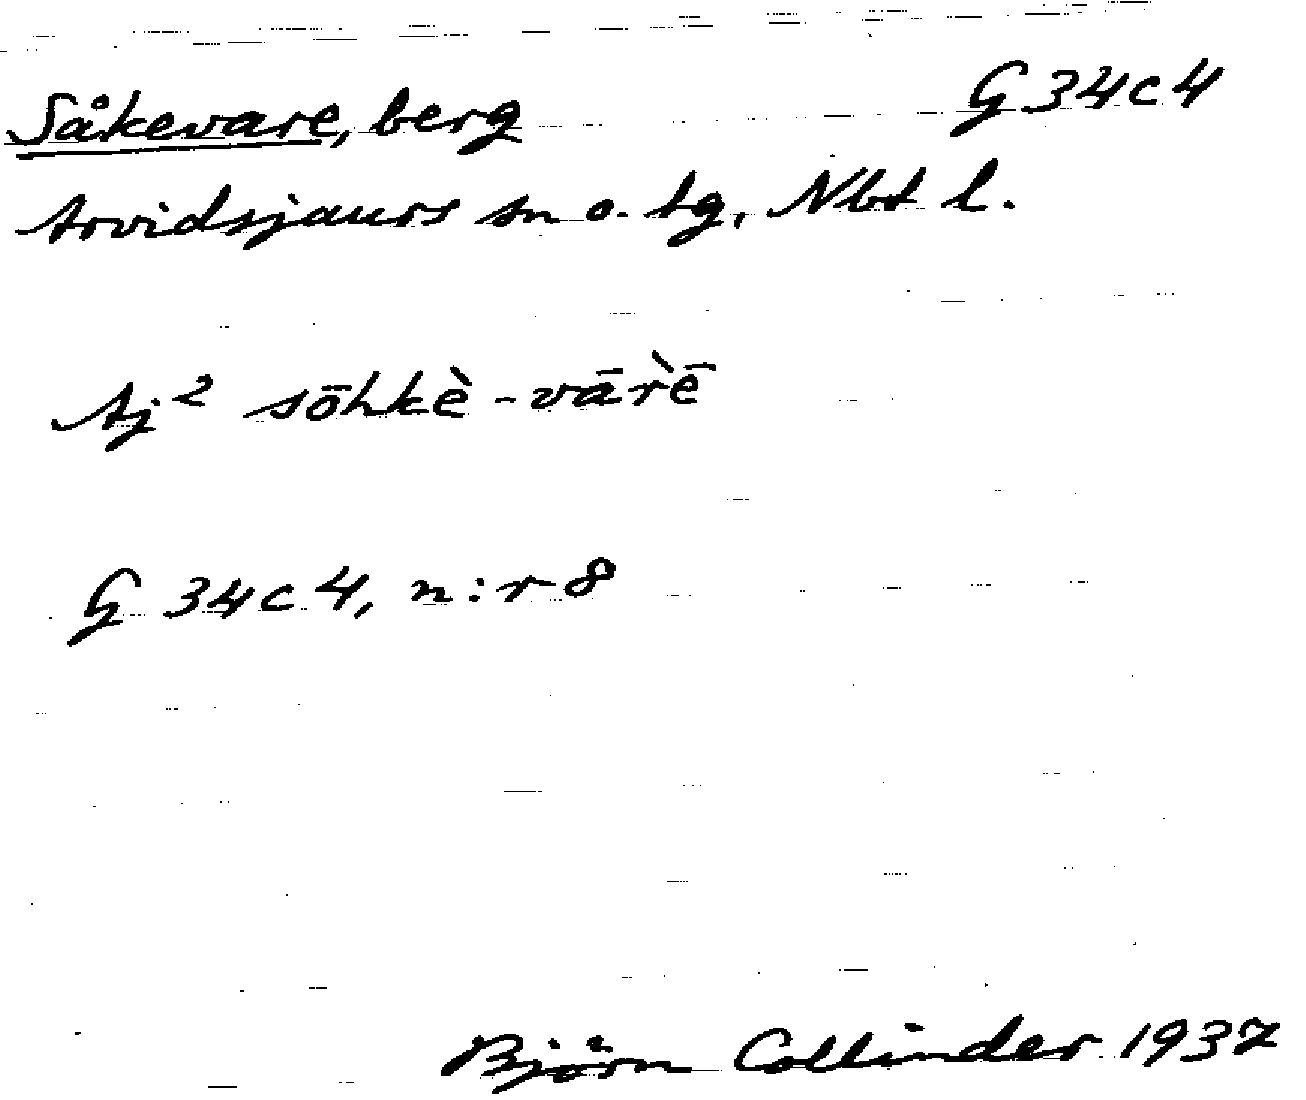 Såkevare, berg G34c4
Arvidsjaurs sn o. tg, Nbt l.
Aj² sōhkè-vārè̄
G 34c4, n:r 8
Björn Collinder 1937